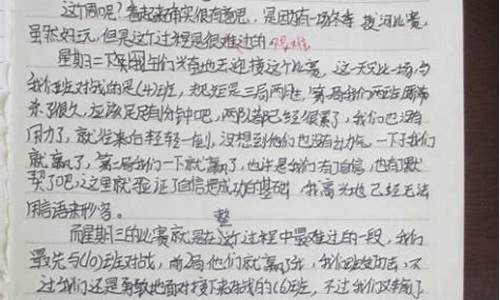 这个周呢?看起来确实很有意思,是因为有一场冬季拔河比赛,
虽然好玩,但是这个过程是很难过的 很难
星期二下午同学们兴奋地去迎接这个比赛,这一天又比一场与
我们班对战的是(4)班,规矩是三局两胜,第一局我们两班
来了很久,应该足足有1分钟吧,两队都已经很累了,我们也没有
用力了,就往来自轻轻一,没想到他们也没有出力气,一下子我们
就赢了,第二局我们一下就赢了,也许是我们有了自信,也有了默
契了吧,这里就验证了自信是成功的基础,我高兴地已经无法
用言语来形容。
整
而星期三的比赛就是在这个过程中最难过的一段,我们
最先与(10)班对战,前2局他们就赢了我,我们班,不
过我们还是勇敢地面对接下来对战的(6)班,不过我们又输了